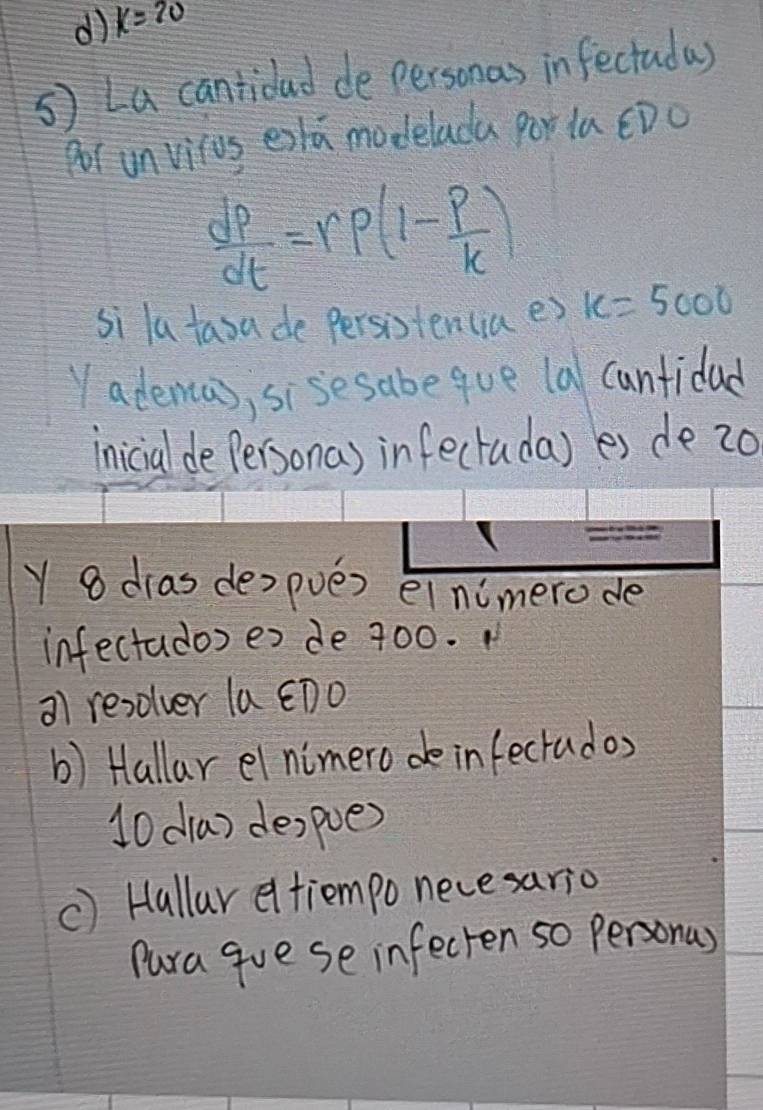 d) K=20
5) La cantidad de personas infectadas
Por un virus está modelada por la EDO
dP/dt = rP(1 - P/k)
si la tasa de Persistencia es K = 5000
Y ademas, si se sabe que la cantidad
inicial de Personas infectadas es de 20
Y 8 dias después el número de
infectados es de 700.
a) resolver la EDO
b) Hallar el número de infectados
10 dias despues
c) Hallar el tiempo necesario
Para que se infecten 50 Personas